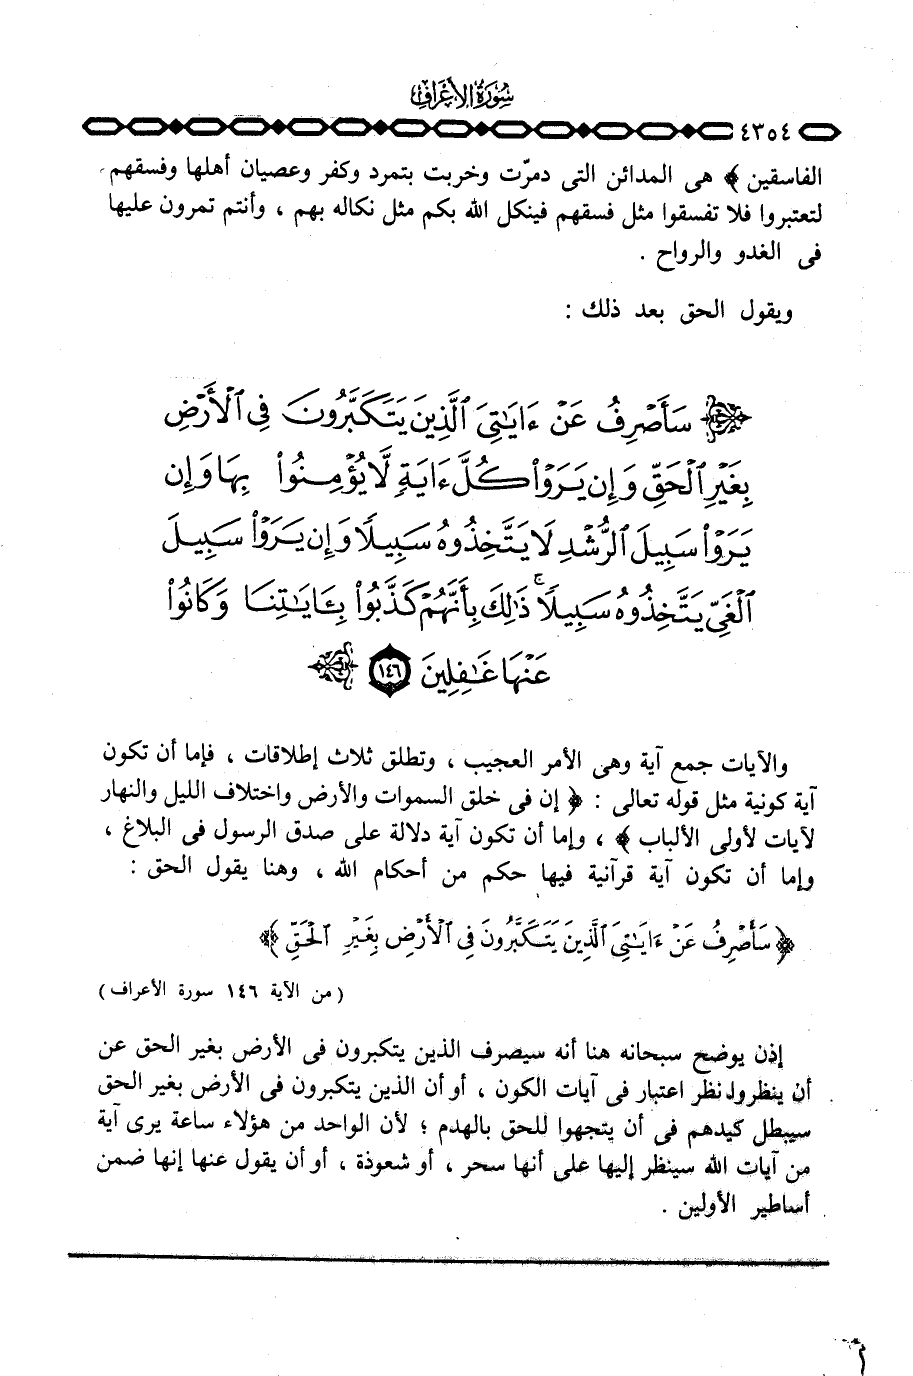 سورة الأعراف
٤٣٥٤
الفاسقين ﴾ هى المدائن التى دمرّت وخربت بتمرد وكفر وعصيان أهلها وفسقهم
لتعتبروا فلا تفسقوا مثل فسقهم فينكل الله بكم مثل نكاله بهم ، وأنتم تمرون عليها
فى الغدو والرواح .
ويقول الحق بعد ذلك :
﴿ سَأَصْرِفُ عَنْ ءَايَٰتِىَ ٱلَّذِينَ يَتَكَبَّرُونَ فِى ٱلْأَرْضِ
بِغَيْرِ ٱلْحَقِّ وَإِن يَرَوْا۟ كُلَّ ءَايَةٍ لَّا يُؤْمِنُوا۟ بِهَا وَإِن
يَرَوْا۟ سَبِيلَ ٱلرُّشْدِ لَا يَتَّخِذُوهُ سَبِيلًا وَإِن يَرَوْا۟ سَبِيلَ
ٱلْغَىِّ يَتَّخِذُوهُ سَبِيلًا ۚ ذَٰلِكَ بِأَنَّهُمْ كَذَّبُوا۟ بِـَٔايَٰتِنَا وَكَانُوا۟
عَنْهَا غَٰفِلِينَ ١٤٦ ﴾
والآيات جمع آية وهى الأمر العجيب ، وتطلق ثلاث إطلاقات ، فإما أن تكون
آية كونية مثل قوله تعالى : ﴿ إن فى خلق السموات والأرض واختلاف الليل والنهار
لآيات لأولى الألباب ﴾ ، وإما أن تكون آية دلالة على صدق الرسول فى البلاغ ،
وإما أن تكون آية قرآنية فيها حكم من أحكام الله ، وهنا يقول الحق :
﴿ سَأَصْرِفُ عَنْ ءَايَٰتِىَ ٱلَّذِينَ يَتَكَبَّرُونَ فِى ٱلْأَرْضِ بِغَيْرِ ٱلْحَقِّ ﴾
( من الآية ١٤٦ سورة الأعراف )
إذن يوضح سبحانه هنا أنه سيصرف الذين يتكبرون فى الأرض بغير الحق عن
أن ينظروا نظر اعتبار فى آيات الكون ، أو أن الذين يتكبرون فى الأرض بغير الحق
سيبطل كيدهم فى أن يتجهوا للحق بالهدم ؛ لأن الواحد من هؤلاء ساعة يرى آية
من آيات الله سينظر إليها على أنها سحر ، أو شعوذة ، أو أن يقول عنها إنها ضمن
أساطير الأولين .